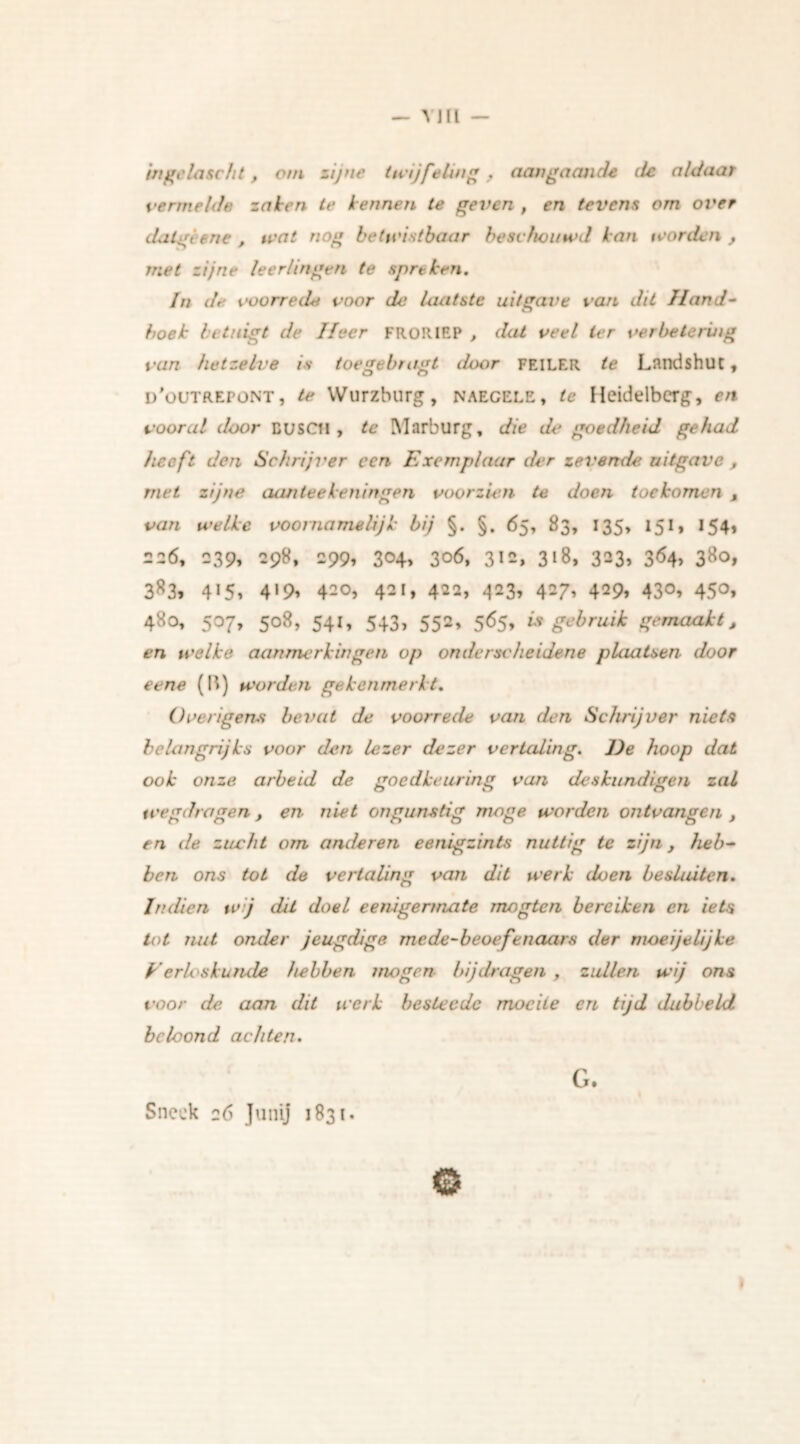 — VIII —
ingelascht, om zijne twijfeling, aangaande de aldaar
vermelde zaken te kennen te geven, en tevens om over
datgeene, wat nog betwistbaar beschouwd kan worden,
met zijne leerlingen te spreken.
In de voorrede voor de laatste uitgave van dit Hand-
boek betuigt de Heer FRORIEP, dat veel ter verbetering
van hetzelve is toegebragt door FEILER te Landshut,
D'OUTREPONT, te Wurzburg, NAEGELE, te Heidelberg, en
vooral door BUSCH, te Marburg, die de goedheid gehad
heeft den Schrijver een Exemplaar der zevende uitgave,
met zijne aanteekeningen voorzien te doen toekomen,
van welke voornamelijk bij §. §. 65, 83, 135, 151, 154,
226, 239, 298, 299, 304, 306, 312, 318, 323, 364, 380,
383, 415, 419, 420, 421, 422, 423, 427, 429, 430, 450,
480, 507, 508, 541, 543, 552, 565, is gebruik gemaakt,
en welke aanmerkingen op onderscheidene plaatsen door
eene (B) worden gekenmerkt.
Overigens bevat de voorrede van den Schrijver niets
belangrijks voor den lezer dezer vertaling. De hoop dat
ook onze arbeid de goedkeuring van deskundigen zal
wegdragen, en niet ongunstig moge worden ontvangen,
en de zucht om anderen eenigzints nuttig te zijn, heb-
ben ons tot de vertaling van dit werk doen besluiten.
Indien wij dit doel eenigermate mogten bereiken en iets
tot nut onder jeugdige mede-beoefenaars der moeijelijke
Verloskunde hebben mogen bijdragen, zullen wij ons
voor de aan dit werk besteede moeite en tijd dubbeld
beloond achten.
G.
Sneek 26 Junij 1831.